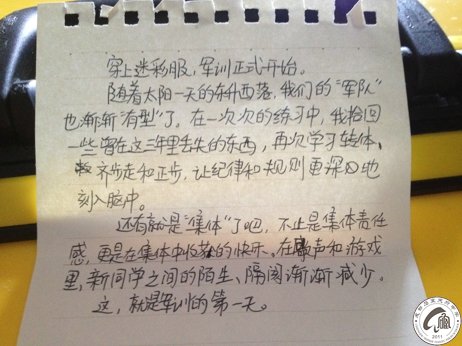 穿上迷彩服，军训正式开始。
随着太阳一天的东升西落，我们的"军队"
也渐渐"有型"了。在一次次的练习中，我拾回
一些曾在这三年里丢失的东西，再次学习转体、
齐步走和正步，让纪律和规则更深刻地
刻入脑中。
还有就是"集体"了吧，不止是集体责任
感，更是在集体中收获的快乐。在歌声和游戏
里，新同学之间的陌生、隔阂渐渐减少。
这，就是军训的第一天。
2011